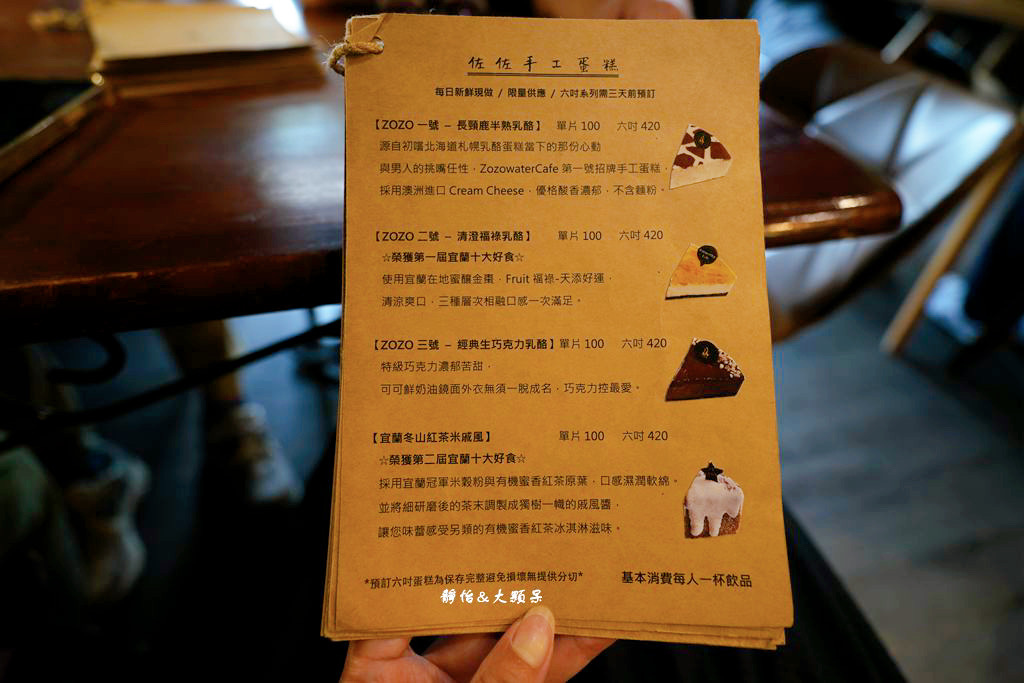 佐佐手工蛋糕
每日新鮮現做 / 限量供應 / 六吋系列需三天前預訂
【ZOZO 一號 – 長頸鹿半熟乳酪】 單片 100 六吋 420
源自初嚐北海道札幌乳酪蛋糕當下的那份心動
與男人的挑嘴任性，ZozowaterCafe 第一號招牌手工蛋糕，
採用澳洲進口 Cream Cheese，優格酸香濃郁，不含麵粉。
【ZOZO 二號 – 清澄福祿乳酪】 單片 100 六吋 420
☆榮獲第一屆宜蘭十大好食☆
使用宜蘭在地蜜釀金棗，Fruit 福祿-天添好運，
清涼爽口，三種層次相融口感一次滿足。
【ZOZO 三號 – 經典生巧克力乳酪】 單片 100 六吋 420
特級巧克力濃郁苦甜，
可可鮮奶油鏡面外衣無須一脫成名，巧克力控最愛。
【宜蘭冬山紅茶米戚風】 單片 100 六吋 420
☆榮獲第二屆宜蘭十大好食☆
採用宜蘭冠軍米穀粉與有機蜜香紅茶原葉，口感濕潤軟綿。
並將細研磨後的茶末調製成獨樹一幟的戚風醬，
讓您味蕾感受另類的有機蜜香紅茶冰淇淋滋味。
*預訂六吋蛋糕為保存完整避免損壞無提供分切* 基本消費每人一杯飲品
靜怡&大顆呆